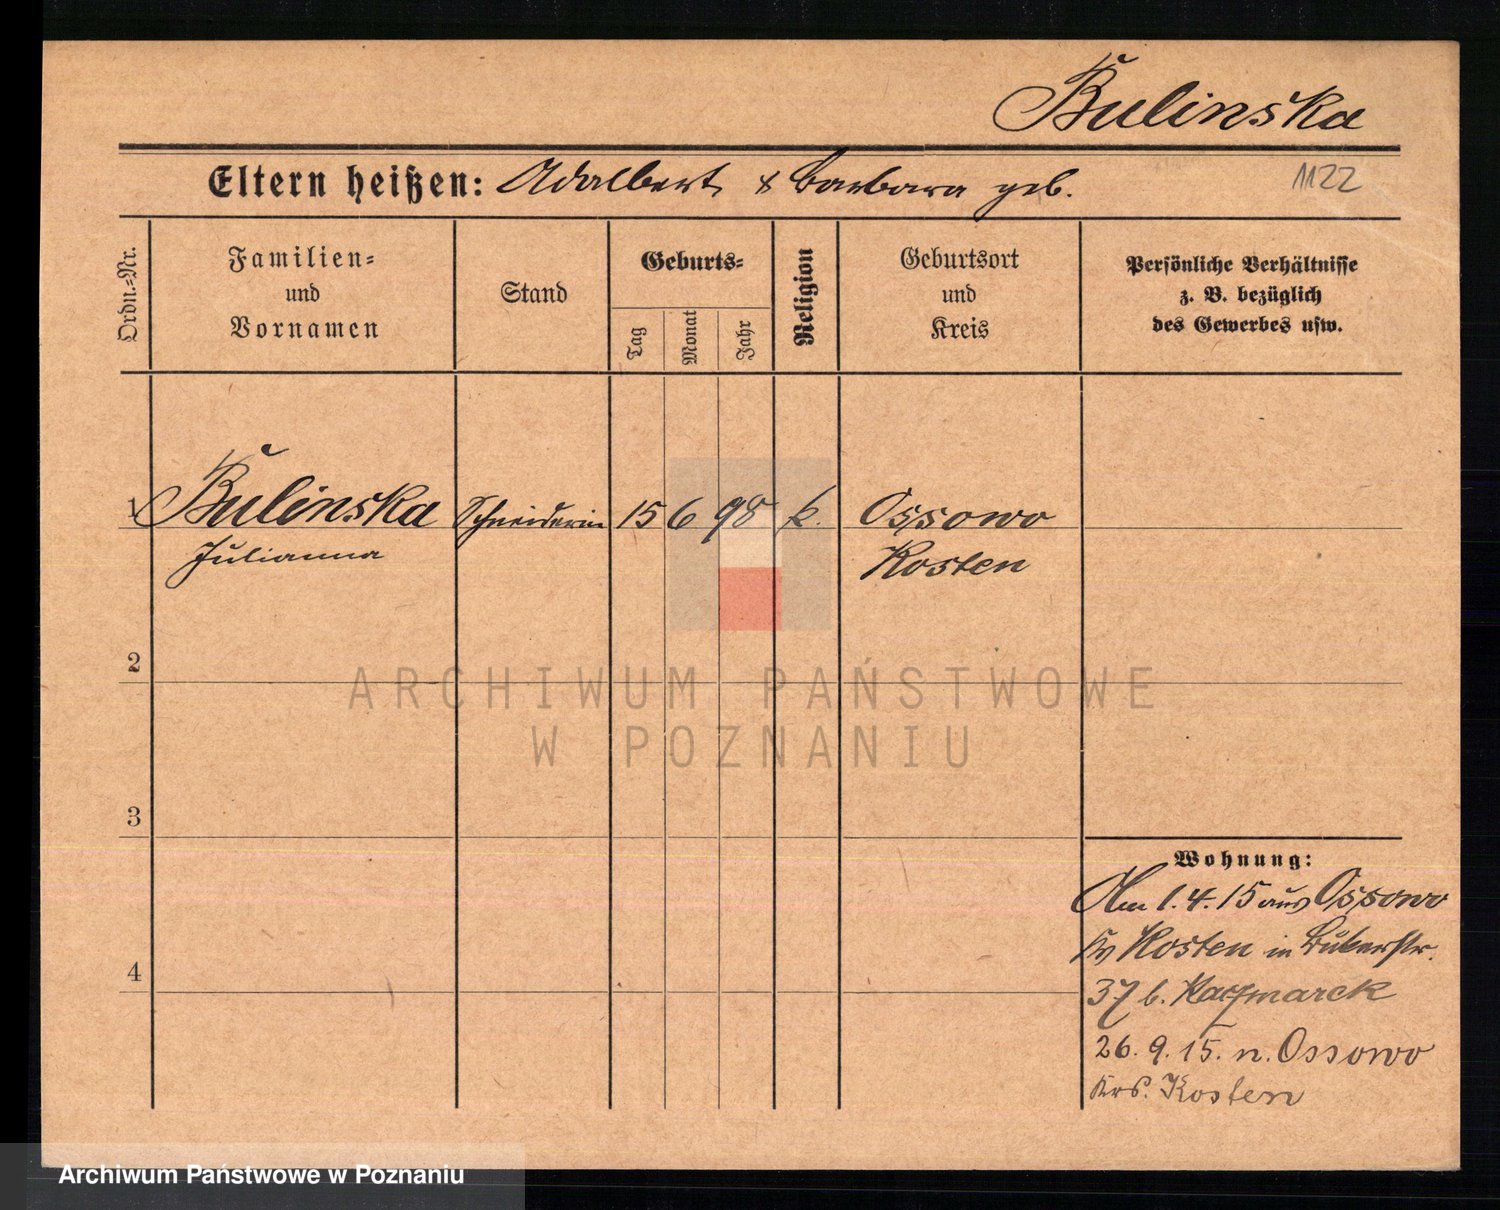 Bulinska
Eltern heißen: Adalbert & Barbara geb.
1122
Ordn.=Nr.
Familien=
und
Vornamen
Stand
Geburts=
Tag
Monat
Jahr
Religion
Geburtsort
und
Kreis
Persönliche Verhältnisse
z. B. bezüglich
des Gewerbes usw.
1 Bulinska Schneiderin 15 6 98 k. Ossowo
Julianna Kosten
2
3
4
Wohnung:
Am 1.4.15 aus Ossowo
Kosten in
37 b. Kaczmarek
26.9.15. n. Ossowo
Krs. Kosten
ARCHIWUM PAŃSTWOWE
W POZNANIU
Archiwum Państwowe w Poznaniu